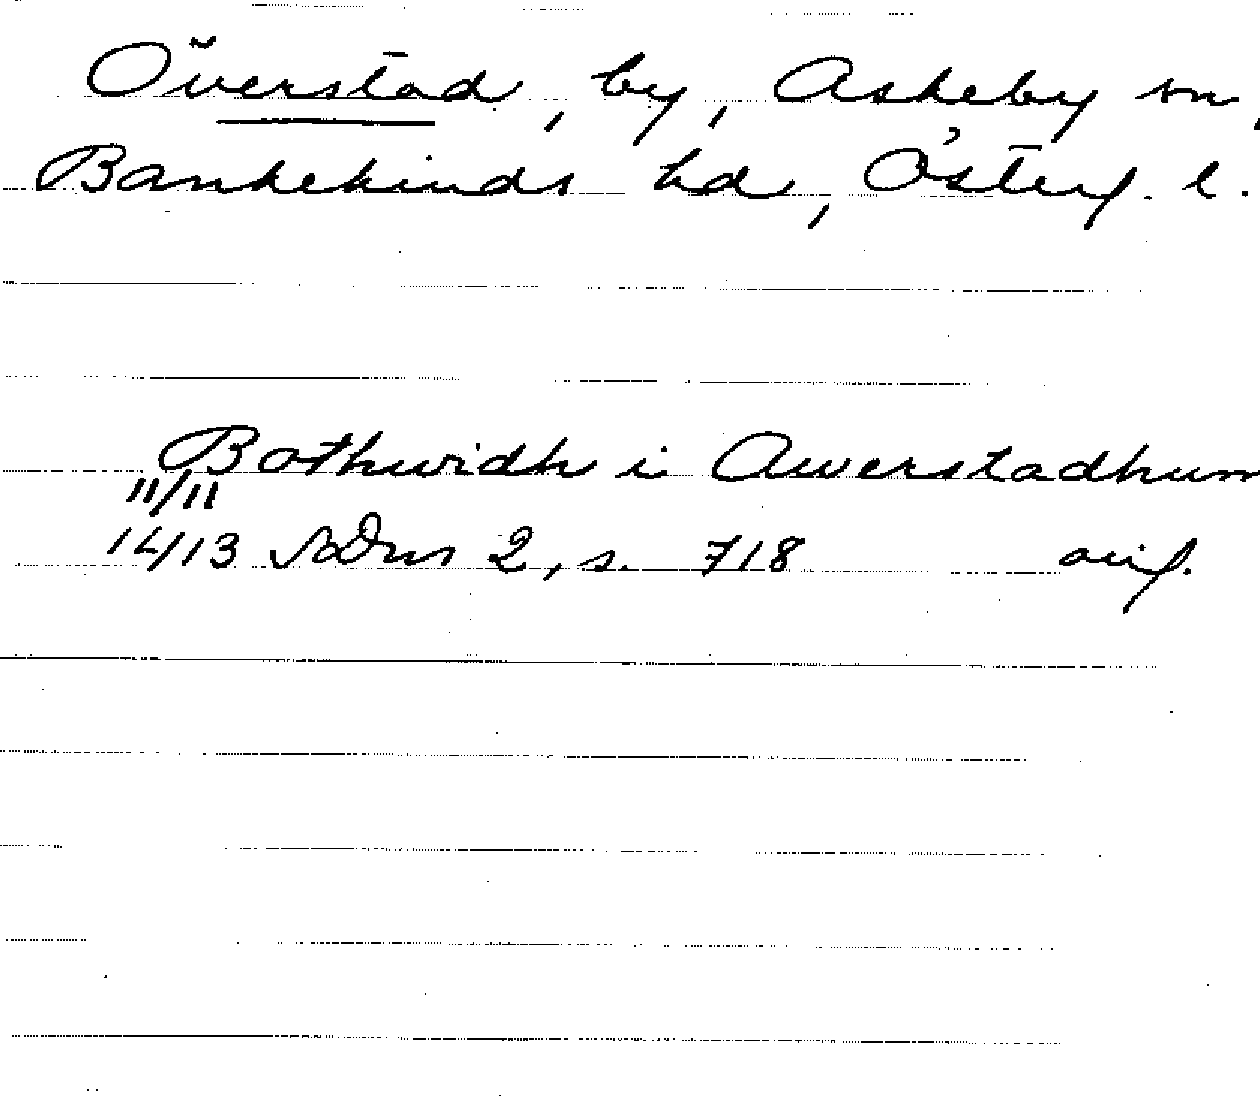 Överstad, by, Askeby sn,
Bankekinds hd, Österg. l.
Bothwidh i Awerstadhum
11/11
14/13 SvDns 2, s. 718 orig.